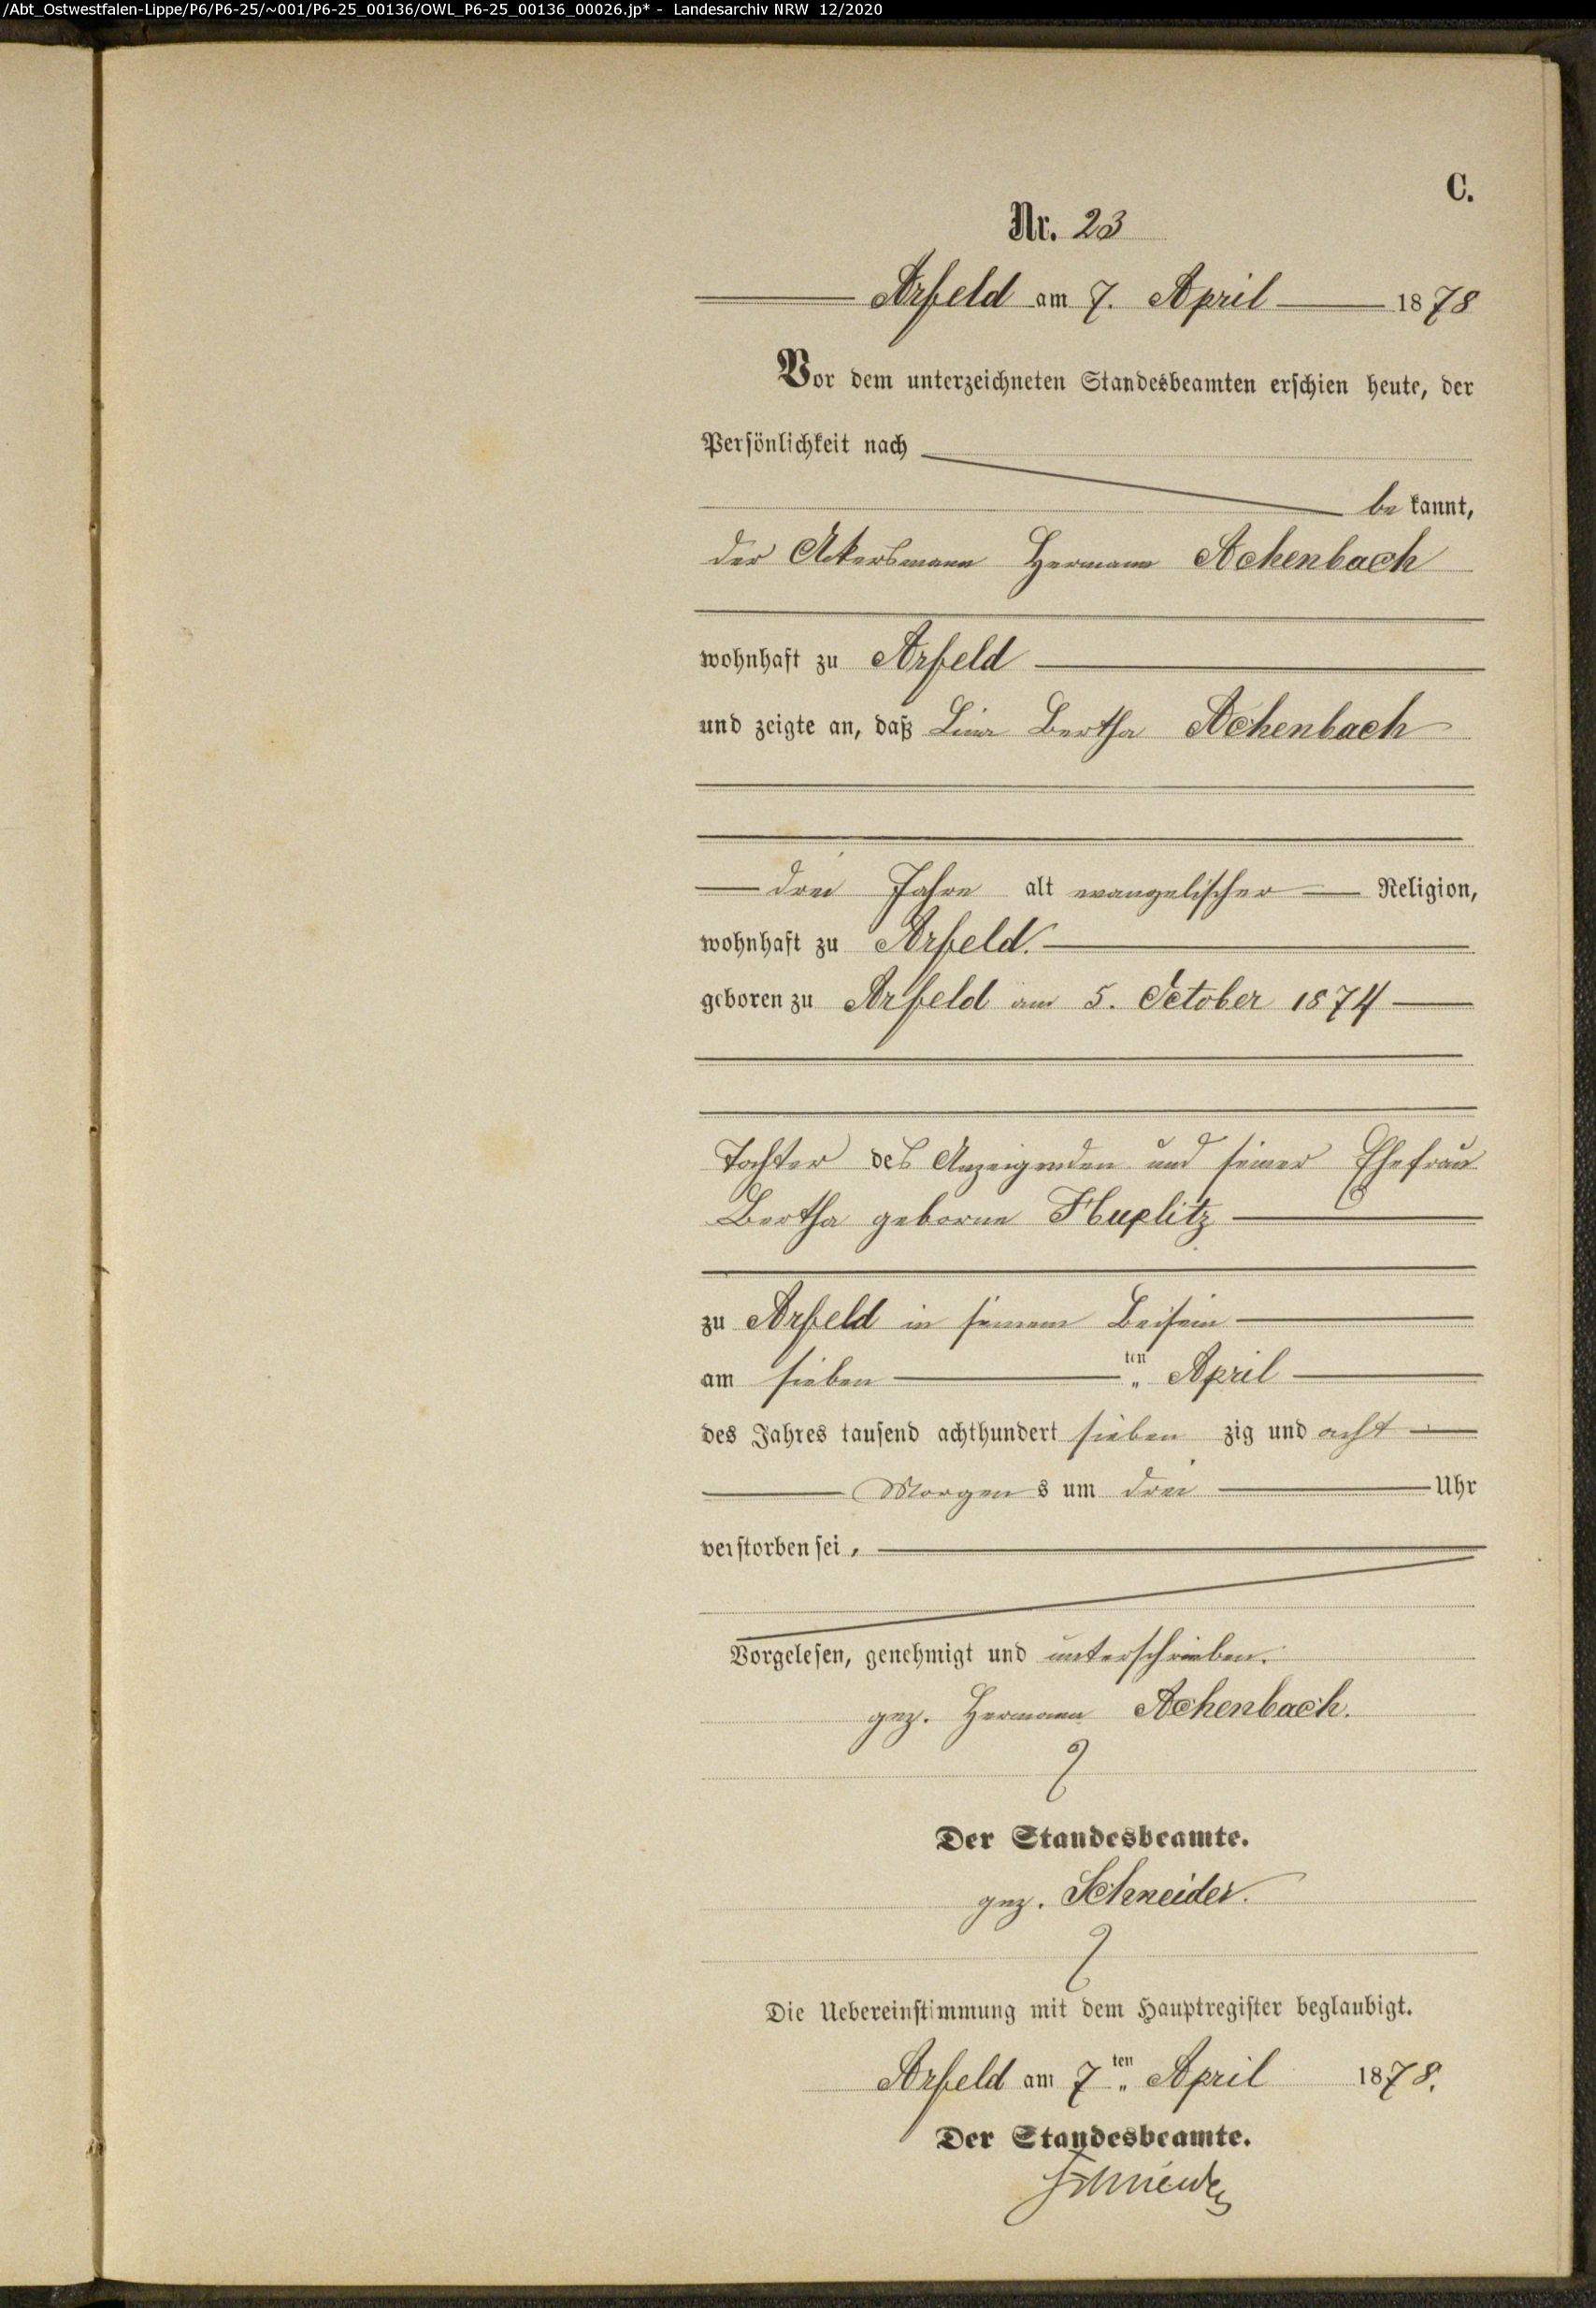 /Abt_Ostwestfalen-Lippe/P6/P6-25/~001/P6-25_00136/OWL_P6-25_00136_00026.jp* - Landesarchiv NRW 12/2020
C.
Nr. 23
Arfeld am 7. April 1878
Vor dem unterzeichneten Standesbeamten erschien heute, der
Persönlichkeit nach
be kannt,
der Ackersmann Hermann Achenbach
wohnhaft zu Arfeld
und zeigte an, daß Lina Bertha Achenbach
drei Jahre alt evangelischer Religion,
wohnhaft zu Arfeld.
geboren zu Arfeld am 5. October 1874
Tochter des Anzeigenden und seiner Ehefrau
Bertha geborne
zu Arfeld in seinem Beisein
am sieben ten April
des Jahres tausend achthundert sieben zig und acht
Morgen s um drei Uhr
verstorben sei,
Vorgelesen, genehmigt und unterschrieben.
gez. Hermann Achenbach.
Der Standesbeamte.
gez. Schneider.
Die Uebereinstimmung mit dem Hauptregister beglaubigt.
Arfeld am 7ten April 1878.
Der Standesbeamte.
Schneider